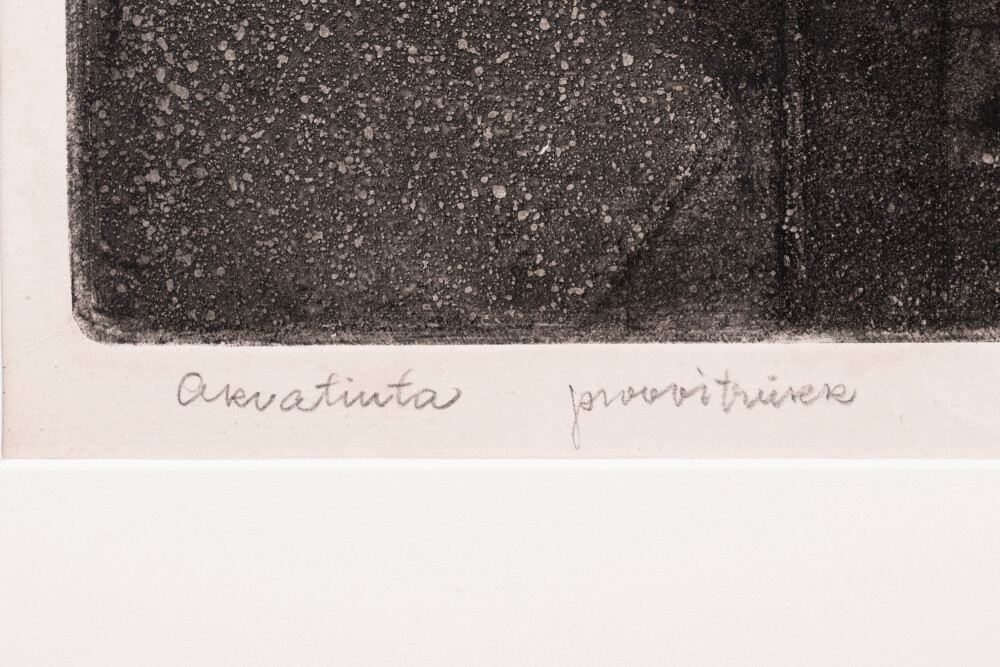 Akvatinta proovitrükk